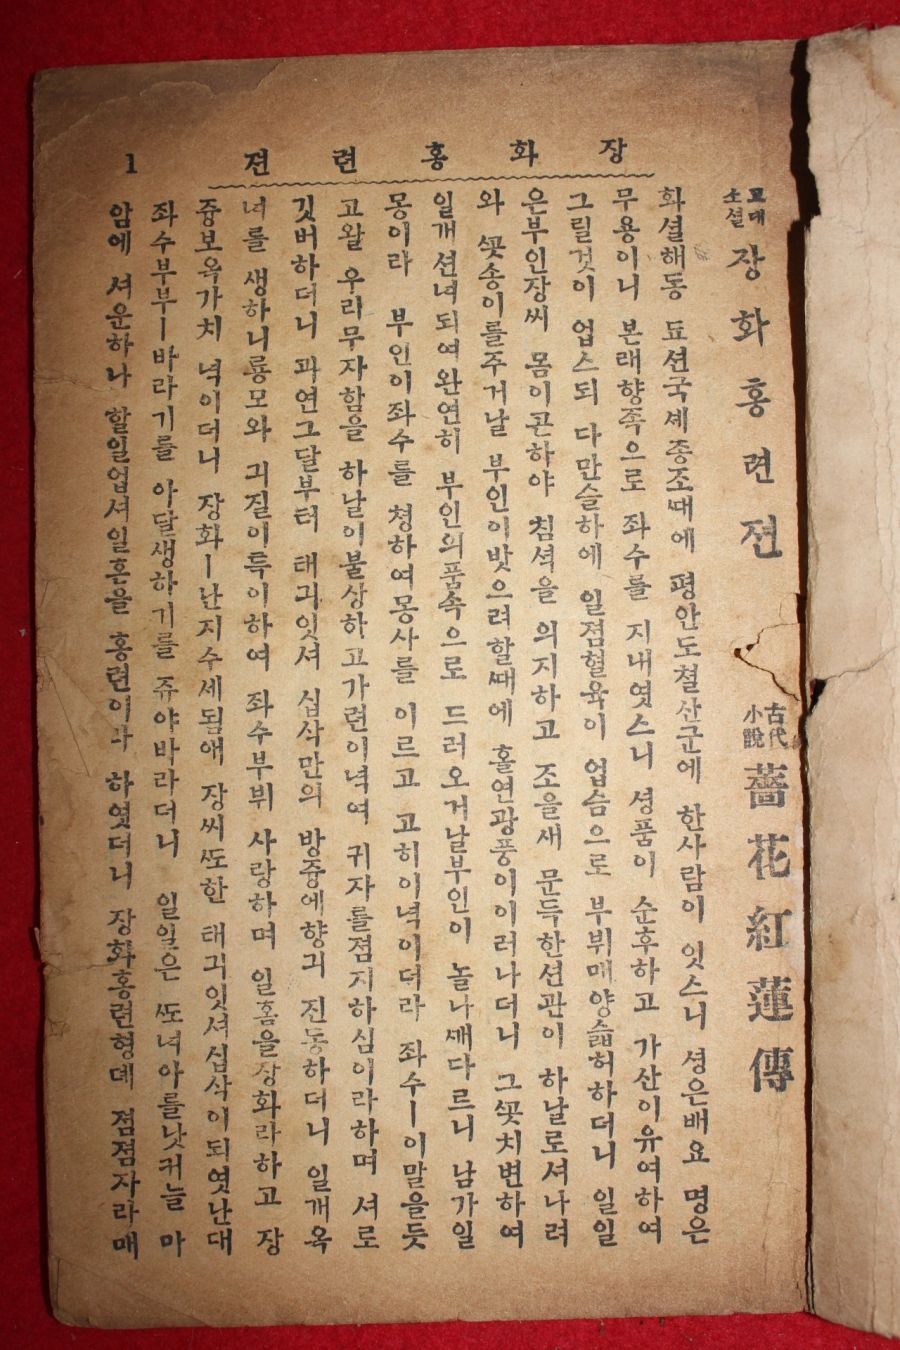 장화홍련젼 1
고대소셜 장화홍련젼 古代小說 薔花紅蓮傳
화셜해동 됴션국셰종조때에 평안도쳘산군에 한사람이 잇스니 셩은배요 명은
무용이니 본래향족으로 좌수를 지내엿스니 셩품이 순후하고 가산이유여하여
그릴것이 업스되 다만슬하에 일졈혈육이 업슴으로 부뷔매양슯허하더니 일일
은부인장씨 몸이곤하야 침셕을 의지하고 조을새 문득한션관이 하날로셔나려
와 ᄭᅩᆺ송이를주거날 부인이밧으려할ᄯᅢ에 홀연광풍이이러나더니 그ᄭᅩᆺ치변하여
일개션녀되여완연히 부인의품속으로 드러오거날부인이 놀나ᄭᅢ다르니 남가일
몽이라 부인이좌수를 쳥하여몽사를 이르고 고히이녁이더라 좌수ㅡ이말을듯
고왈 우리무자함을 하날이불상하고가련이녁여 귀자를졈지하심이라하며 셔로
깃버하더니 과연그달부터 태긔잇셔 십삭만의 방즁에향긔 진동하더니 일개옥
녀를 생하니룡모와 긔질이특이하여 좌수부뷔 사랑하며 일홈을장화라하고 장
즁보옥가치 녁이더니 장화ㅡ난지수세됨애 장씨ᄯᅩ한 태긔잇셔십삭이되엿난대
좌수부부ㅡ바라기를 아달생하기를 쥬야바라더니 일일은 ᄯᅩ녀아를낫커늘 마
암에 셔운하나 할일업셔일흔을 홍련이라 하엿더니 장화홍련형뎨 졈졈자라매